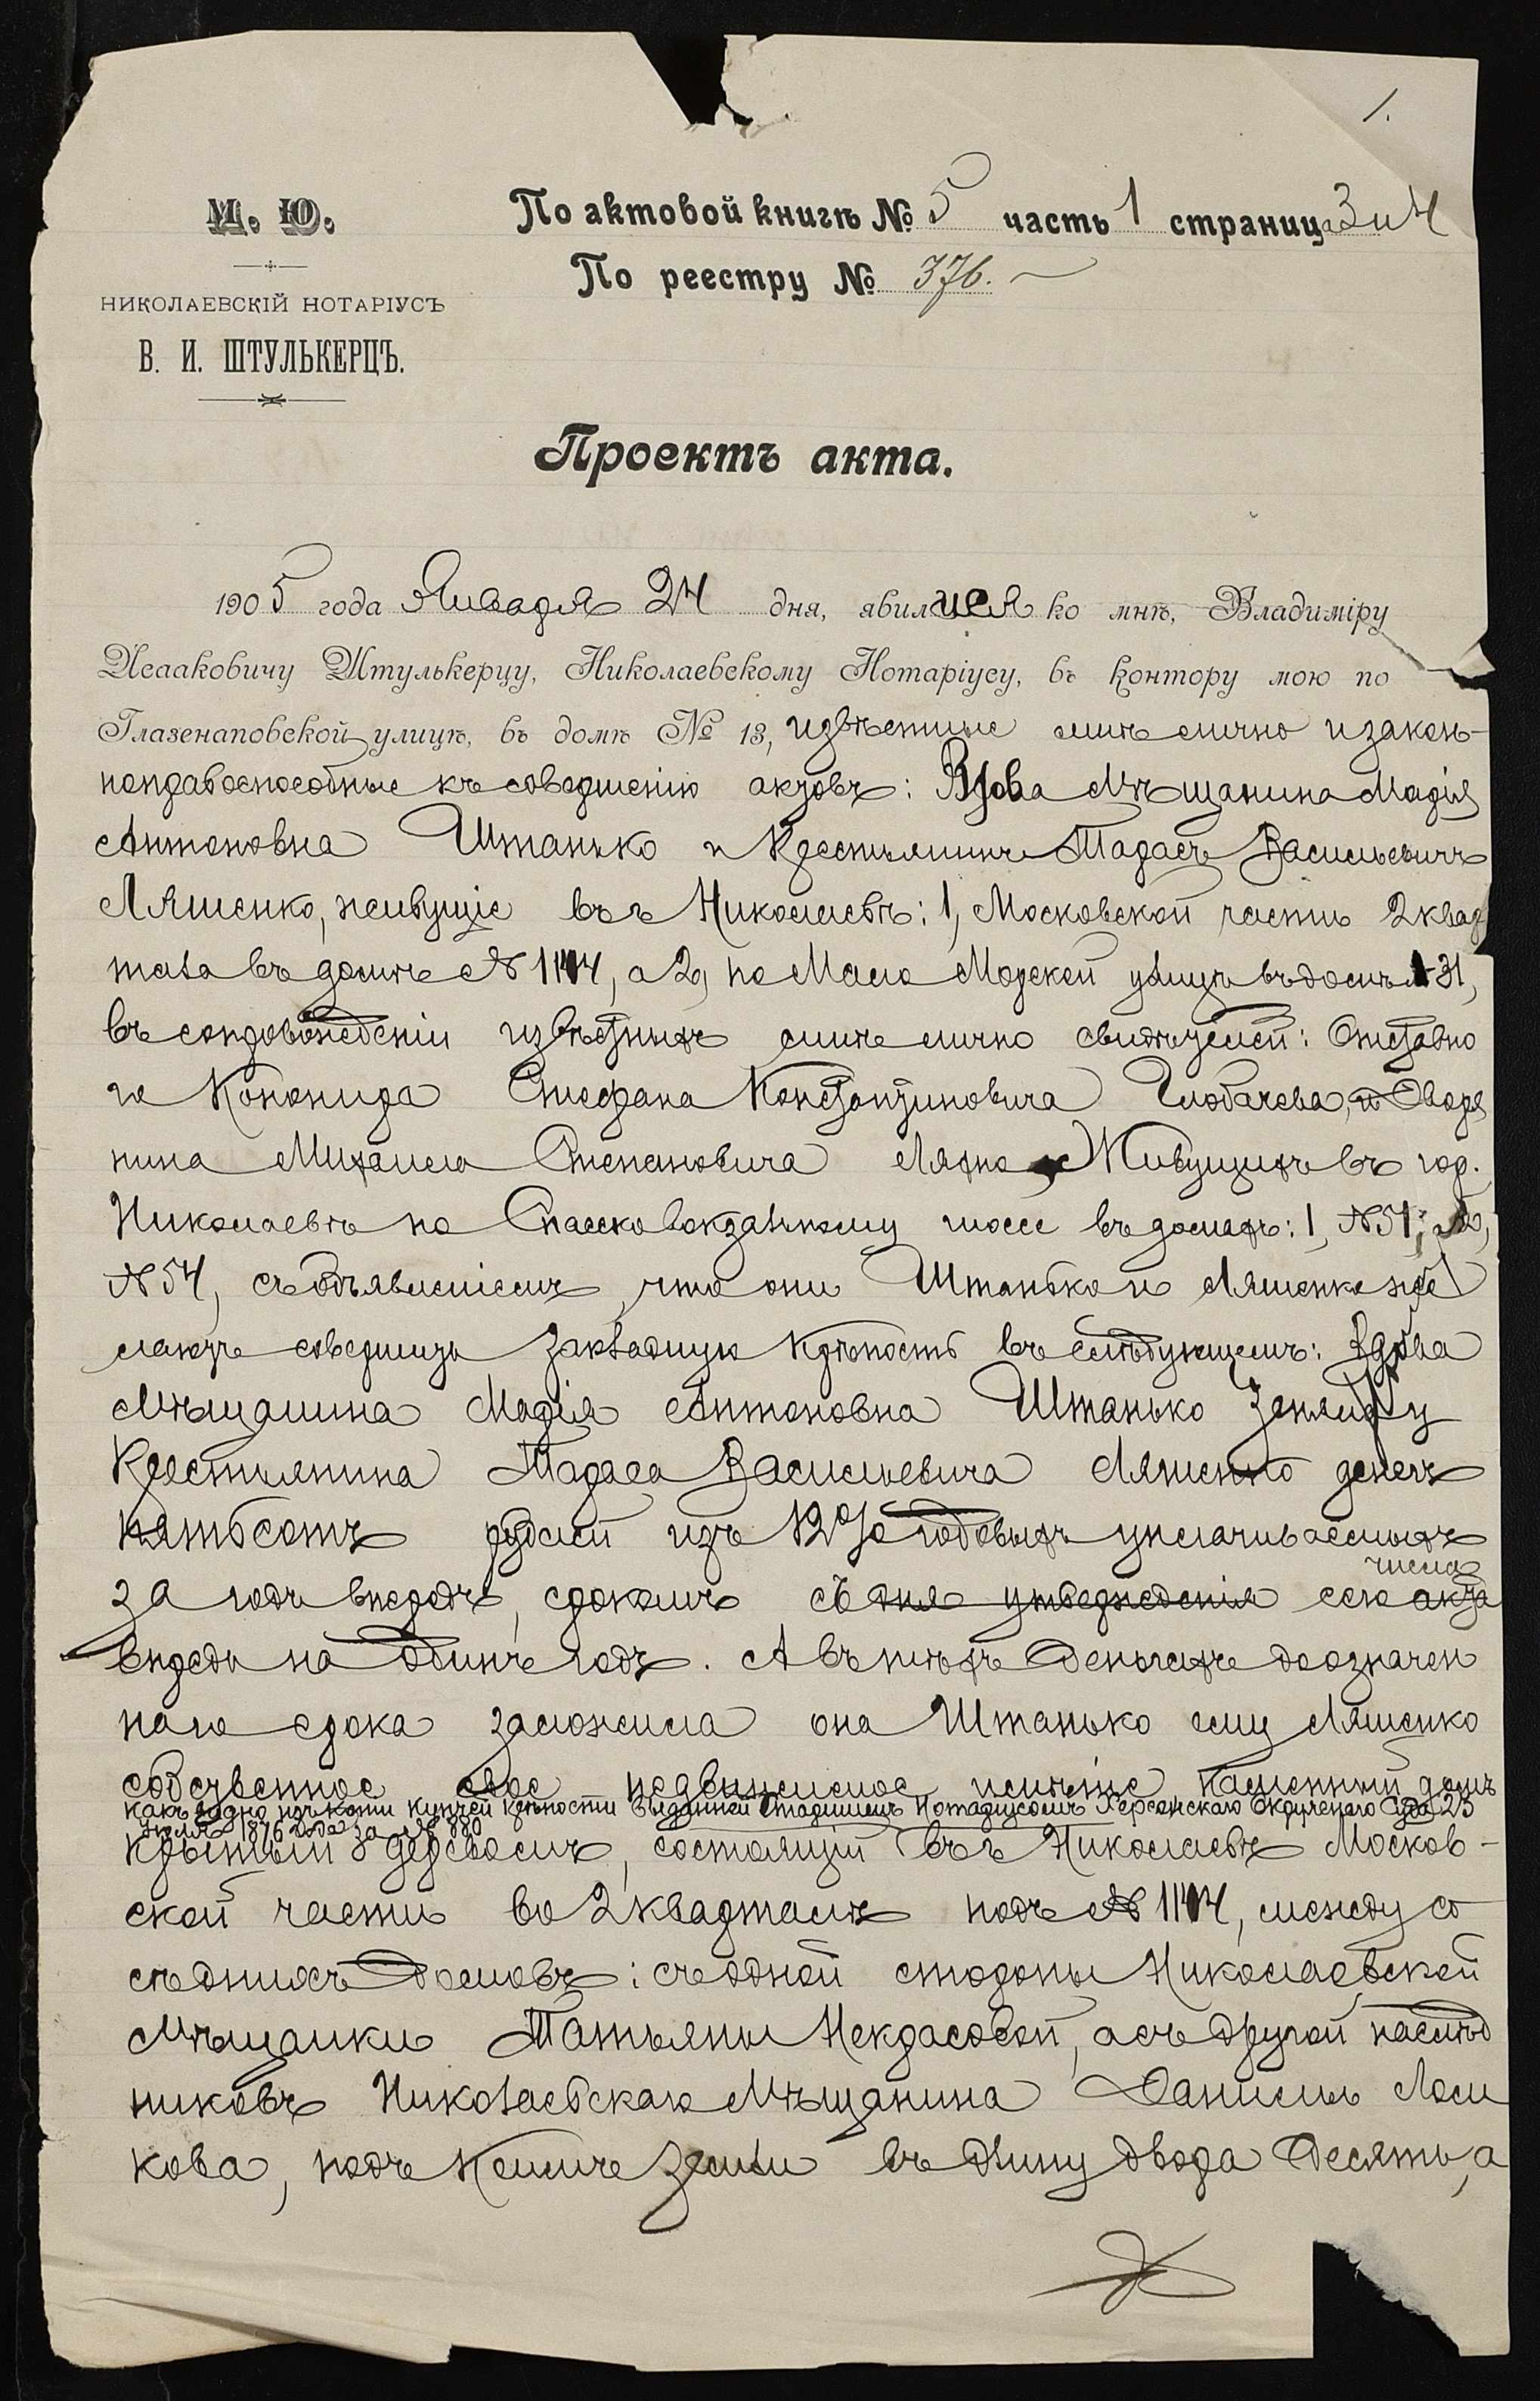 1.
М. Ю.
По актовой книгѣ № 5 часть 1 страница 3 и 4
По реестру № 376.
НИКОЛАЕВСКІЙ НОТАРІУСЪ
В. И. ШТУЛЬКЕРЦЪ.
Проектъ акта.
1905 года Января 24 дня, явились ко мнѣ, Владиміру
Исааковичу Штулькерцу, Николаевскому Нотаріусу, въ контору мою по
Глазенаповской улицѣ, въ домѣ № 13, извѣстные мнѣ лично и закон-
ноправоспособные къ совершенію актовъ: Вдова Мѣщанина Марія
Антоновна Штанько и Крестьянинъ Тарасъ Васильевичъ
Ляшенко, живущіе въ г Николаевѣ: 1, Московской части 2 квар
тала въ домѣ № 1144, а 2, по Мало Морской улицѣ въ домѣ № 31,
въ сопровожденіи извѣстныхъ мнѣ лично свидѣтелей: Отставно
го Кононира Стефана Константиновича Глобачева, и Дворя
нина Михаила Степановича Ляхно, Живущихъ въ гор.
Николаевѣ по Спасско вокзальному шоссе въ домахъ: 1, № 51; 2,
№ 54, съ объявленіемъ, что они Штанько и Ляшенко же
лаютъ совершить закладную крѣпость въ слѣдующемъ: Вдова
Мѣщанина Марія Антоновна Штанько заняла у
Крестьянина Тараса Васильевича Ляшенко денегъ
пятьсотъ рублей изъ 12% годовыхъ уплачиваемыхъ
числа
за годъ впередъ, срокомъ съ дня утвержденія сего акта
впредь на одинъ годъ. А въ тѣхъ деньгахъ до означен
наго срока заложила она Штанько ему Ляшенко
собственное свое недвижимое имѣніе каменный домъ
какъ видно изъ копіи купчей крѣпости выданной Старшимъ Нотаріусомъ Херсонскаго Окружнаго Суда 23
Іюля 1876 года за № 880
крытый деревомъ, состоящій въ г Николаевѣ Москов-
ской части во 2 кварталѣ подъ № 1144, между со
сѣднихъ домовъ: съ одной стороны Николаевской
Мѣщанки Татьяны Некрасовой, а съ другой наслѣд
никовъ Николаевскаго Мѣщанина Даниила Лом
кова, подъ коимъ земли въ длину двора десять, а